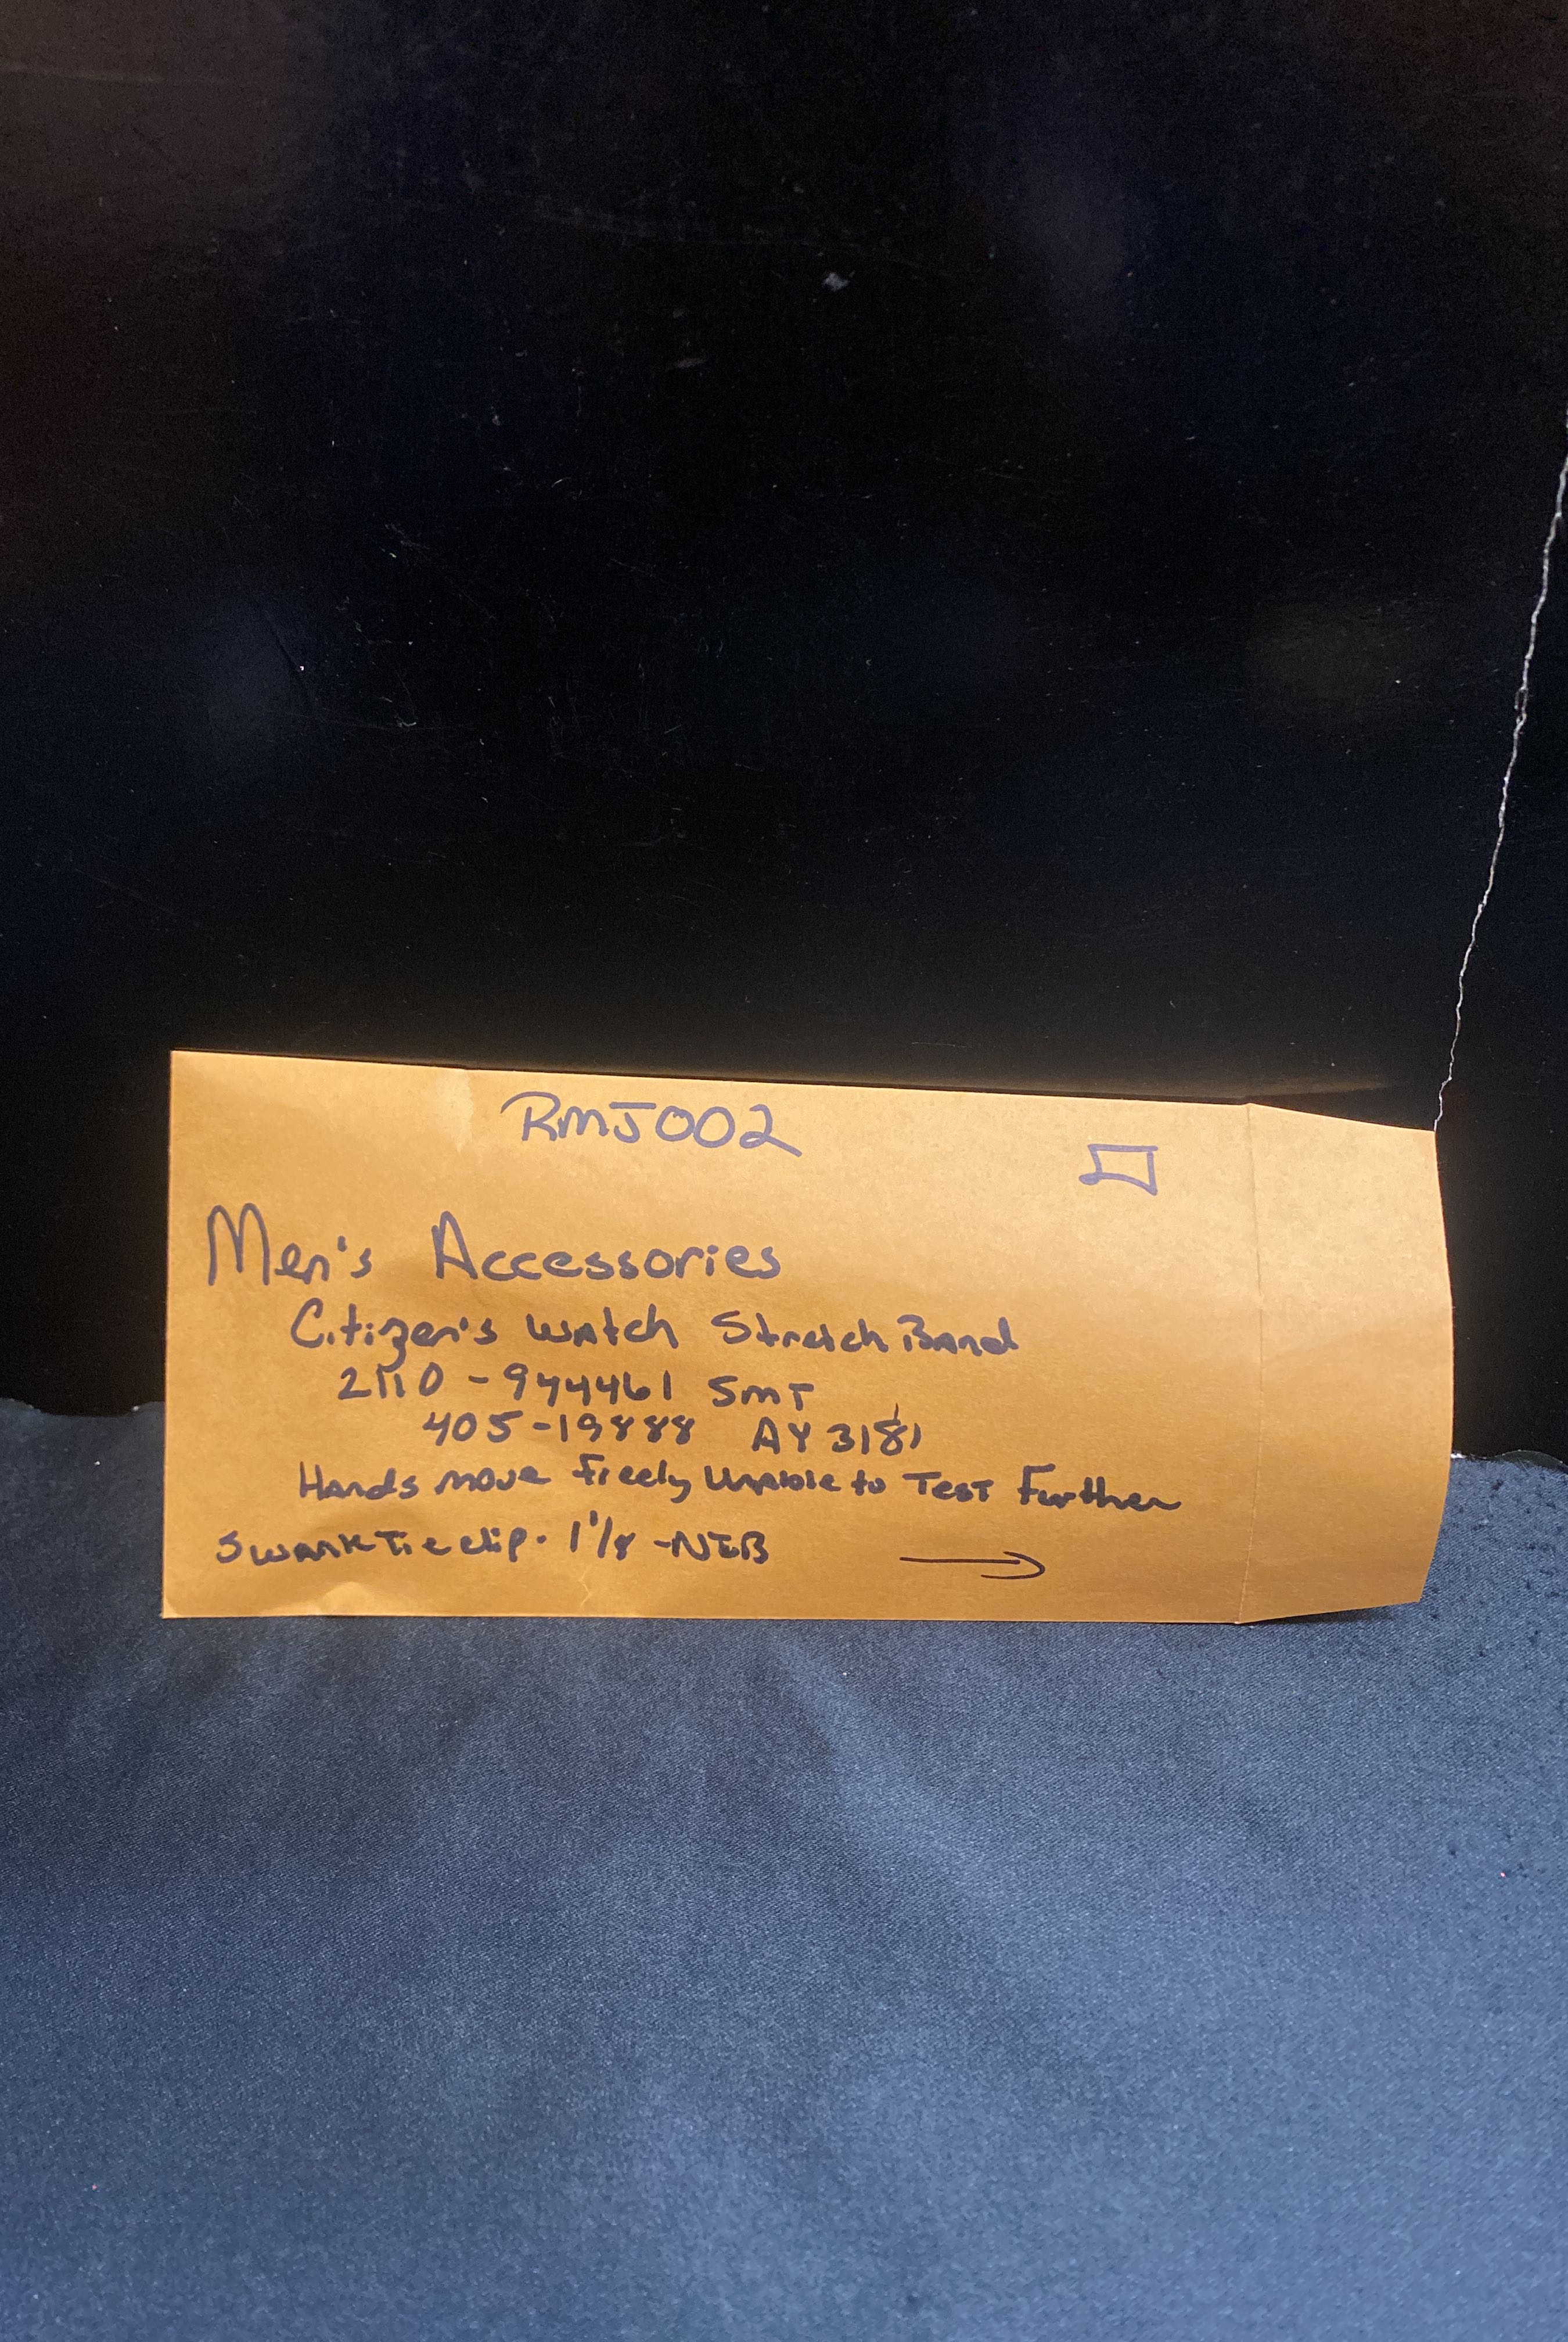 RMJ002
Men's Accessories
Citizen's Watch Stretch Band
2110-944461 SMT
405-19888 AY 3181
Hands move freely Unable to Test Further
Swank Tie clip. 1 1/8 - NIB